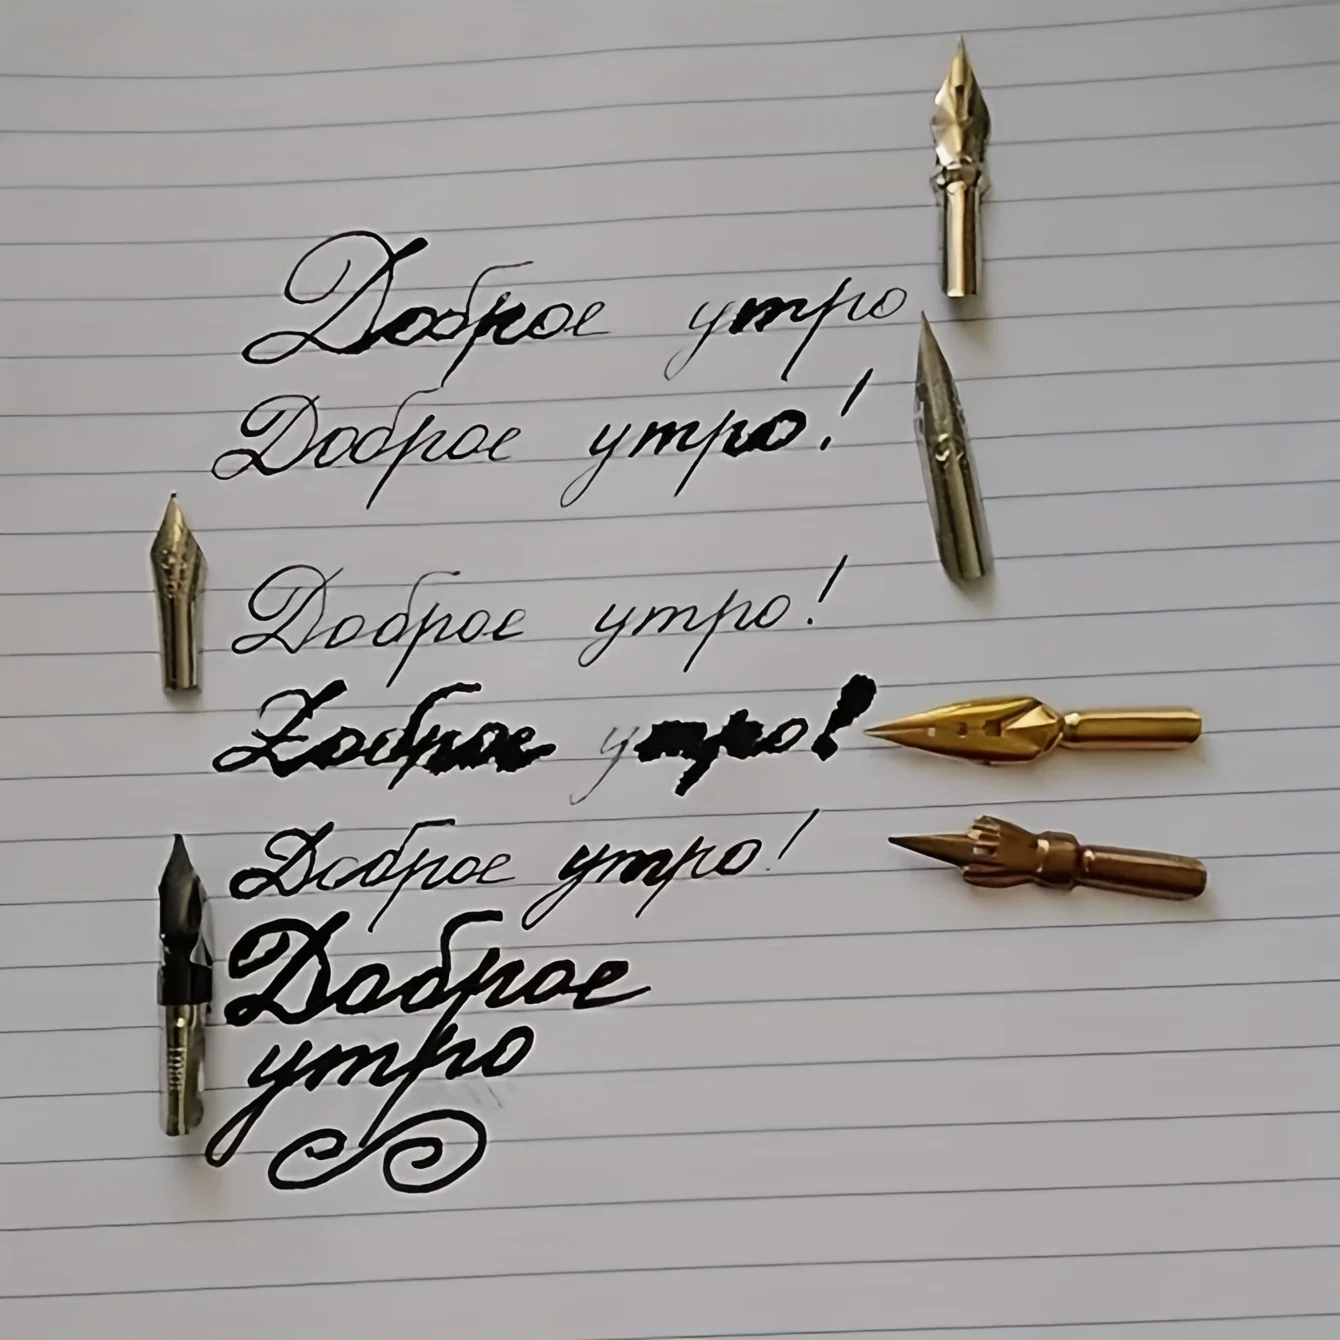 Доброе утро
Доброе утро!
Доброе утро!
Доброе утро!
Доброе утро!
Доброе
утро